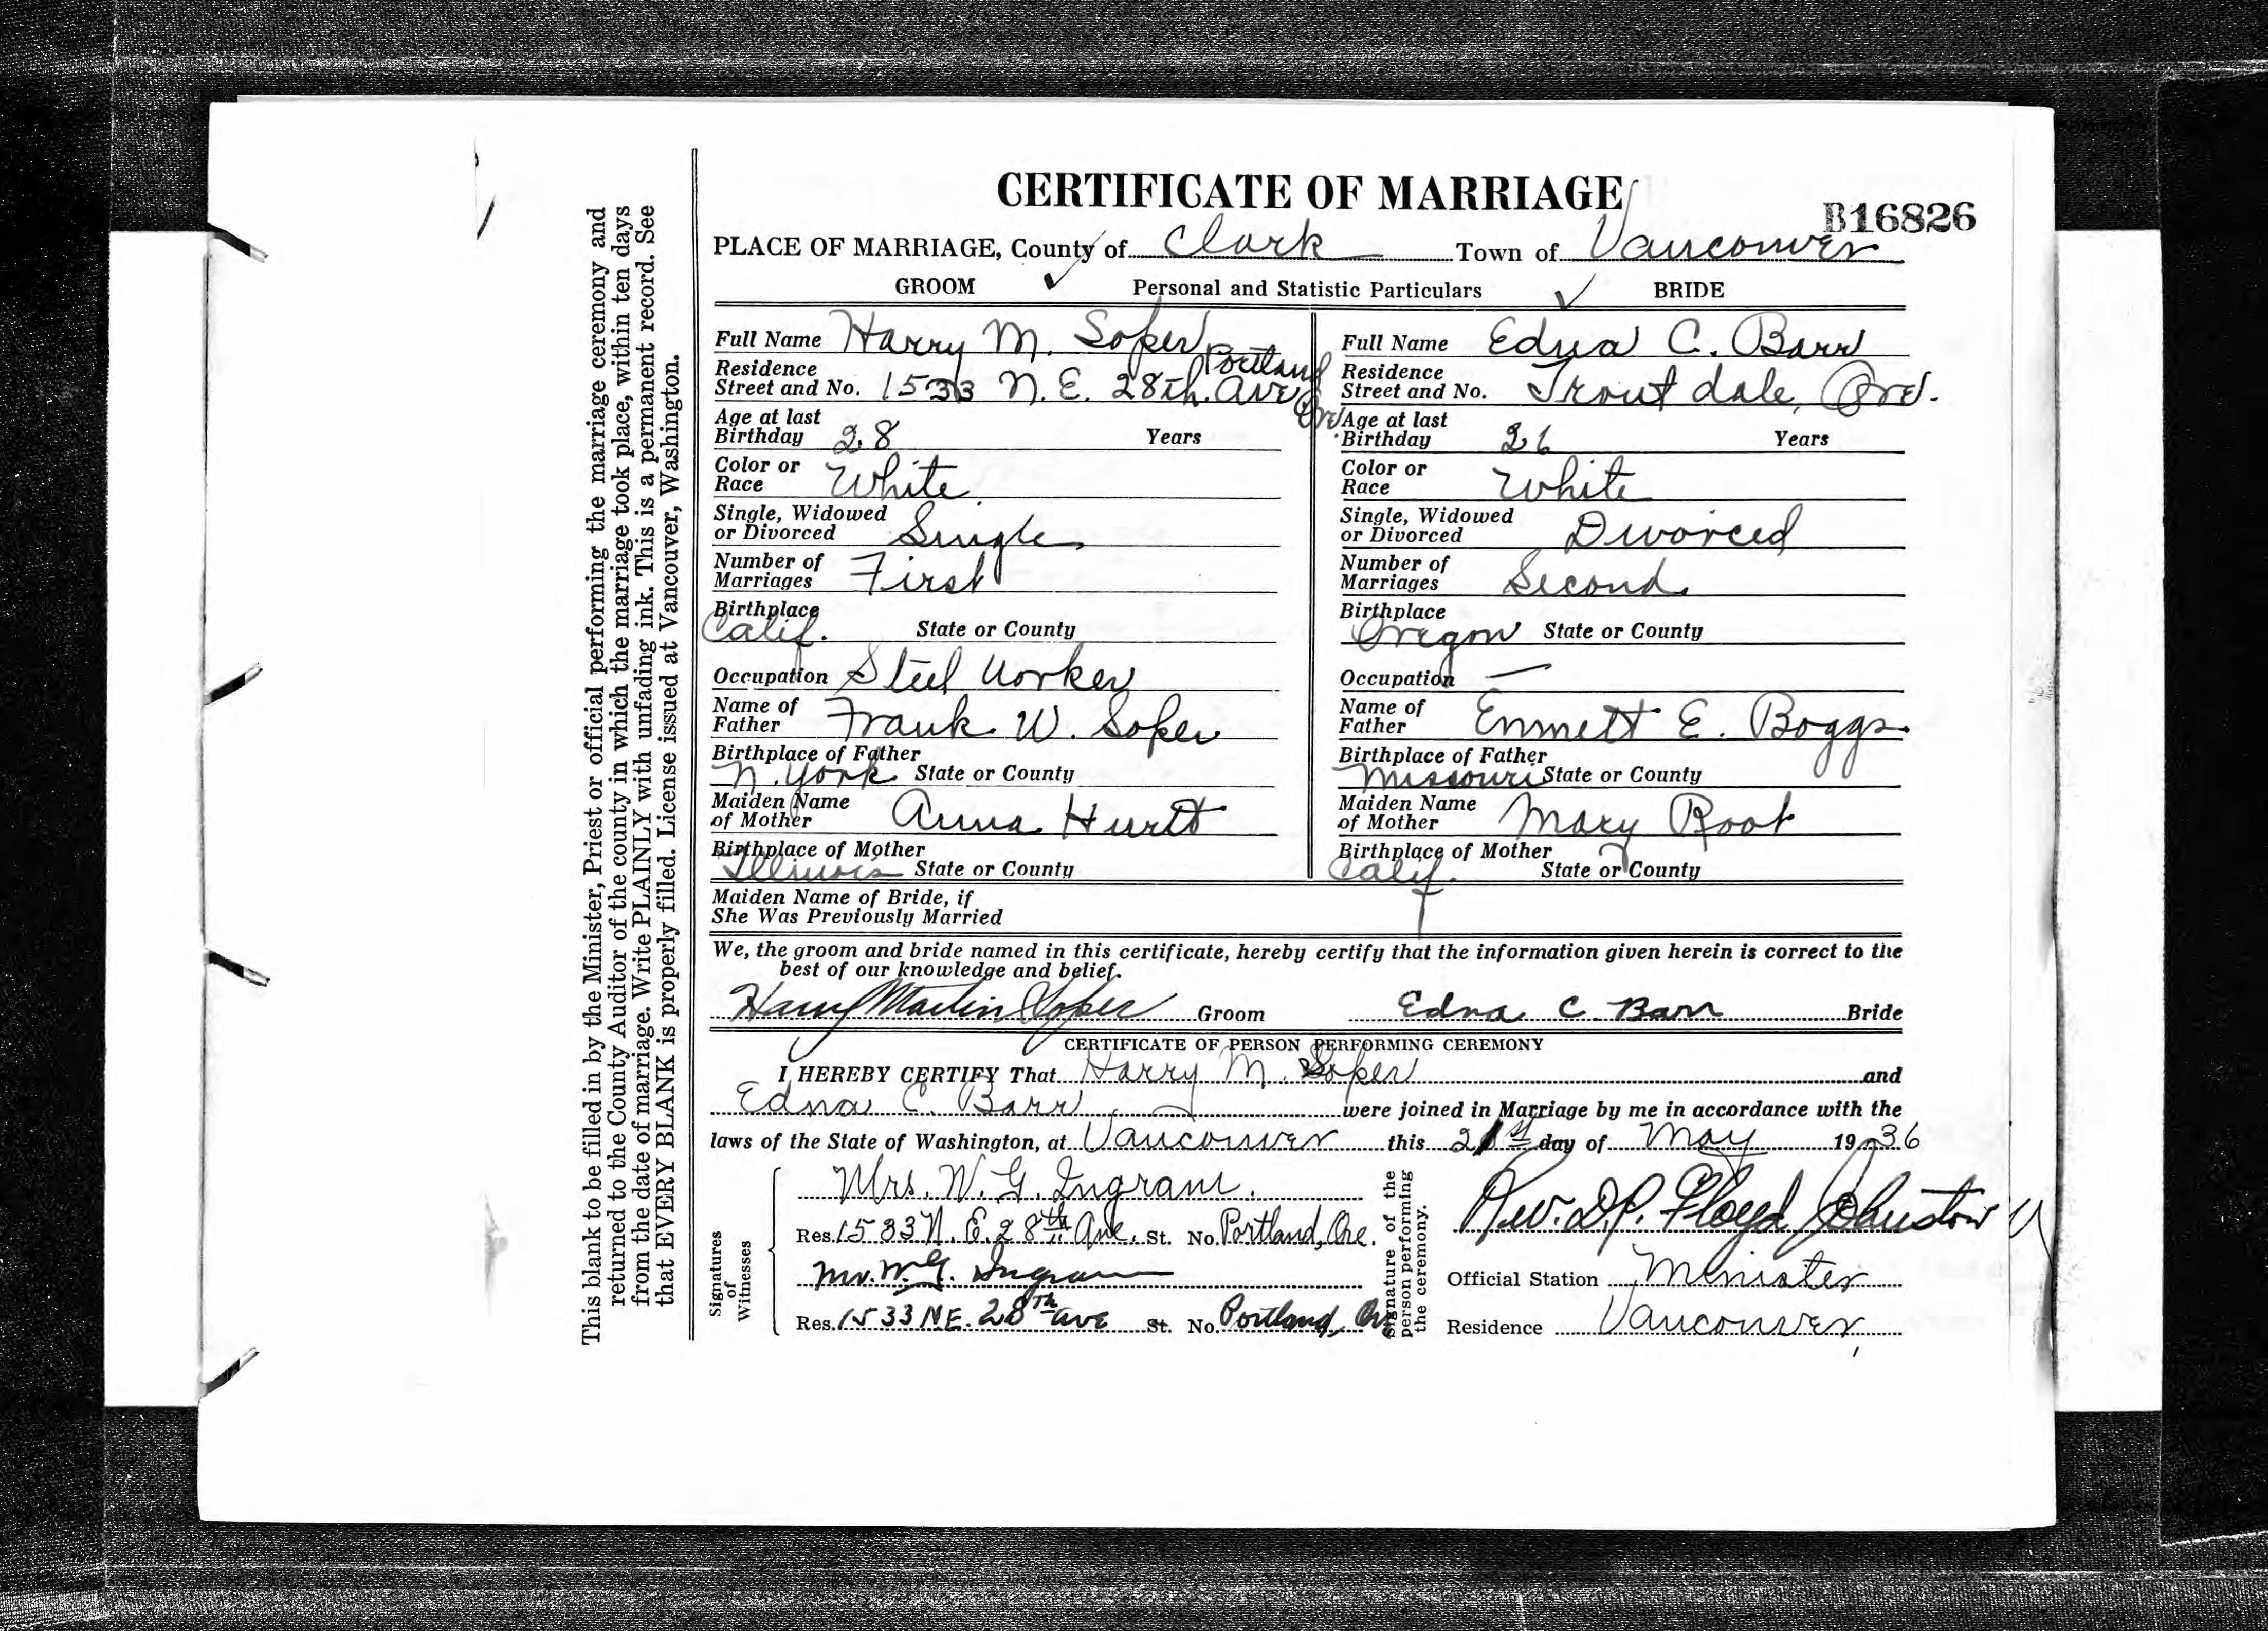 CERTIFICATE OF MARRIAGE
B16826
PLACE OF MARRIAGE, County of Clark Town of Vancouver
GROOM Personal and Statistic Particulars BRIDE
Full Name Harry M. Soper
Residence Portland
Street and No. 1533 N.E. 28th. Ave Ore
Age at last
Birthday 28 Years
Color or
Race White
Single, Widowed
or Divorced Single
Number of
Marriages First
Birthplace
Calif. State or County
Occupation Steel Worker
Name of
Father Frank W. Soper
Birthplace of Father
N. York State or County
Maiden Name
of Mother Anna Hurtt
Birthplace of Mother
Illinois State or County
Full Name Edna C. Barr
Residence
Street and No. Troutdale, Ore.
Age at last
Birthday 26 Years
Color or
Race White
Single, Widowed
or Divorced Divorced
Number of
Marriages Second
Birthplace
Oregon State or County
Occupation —
Name of
Father Emmett E. Boggs
Birthplace of Father
Missouri State or County
Maiden Name
of Mother Mary Root
Birthplace of Mother
Calif. State or County
Maiden Name of Bride, if
She Was Previously Married
We, the groom and bride named in this certificate, hereby certify that the information given herein is correct to the
best of our knowledge and belief.
Harry Martin Soper Groom Edna C. Barr Bride
CERTIFICATE OF PERSON PERFORMING CEREMONY
I HEREBY CERTIFY That Harry M. Soper and
Edna C. Barr were joined in Marriage by me in accordance with the
laws of the State of Washington, at Vancouver this 21st day of May 1936
Signatures
of
Witnesses
Mrs. W. G. Ingram.
Res. 1533 N. E. 28th Ave. St. No. Portland, Ore.
Mr. W.G. Ingram
Res. 1533 NE. 28th Ave St. No. Portland, Ore
Signature of the
person performing
the ceremony.
Rev. D.P. Floyd Johnston
Official Station Minister
Residence Vancouver
This blank to be filled in by the Minister, Priest or official performing the marriage ceremony and
returned to the County Auditor of the county in which the marriage took place, within ten days
from the date of marriage. Write PLAINLY with unfading ink. This is a permanent record. See
that EVERY BLANK is properly filled. License issued at Vancouver, Washington.